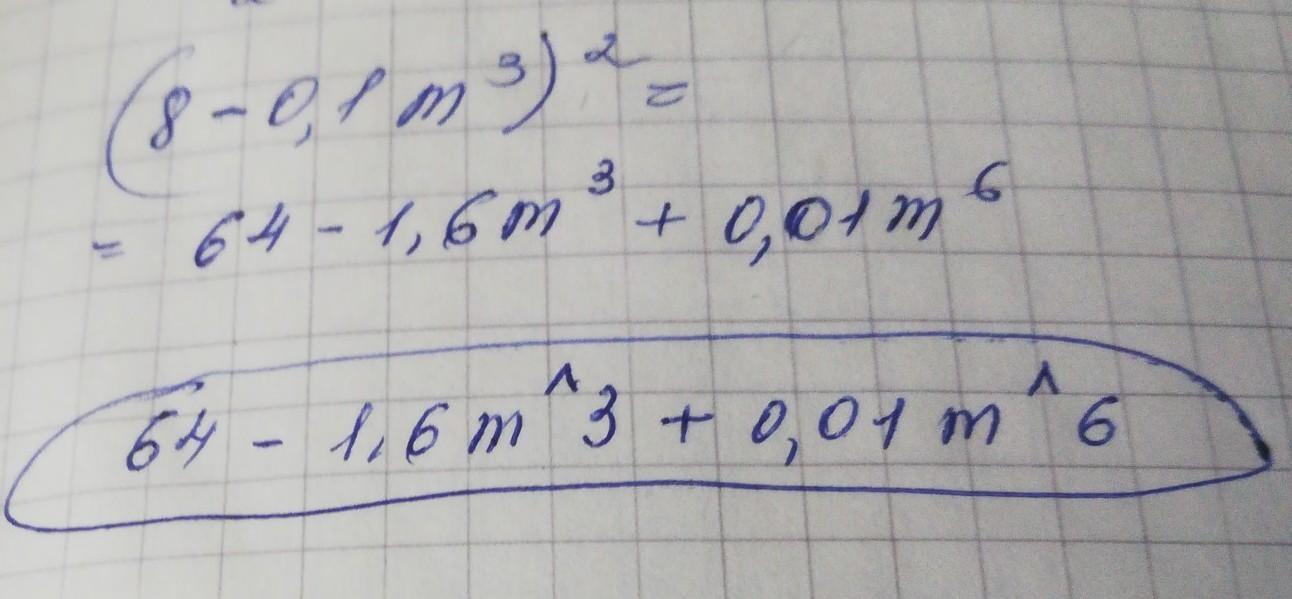 (8 - 0,1 m³)² =
= 64 - 1,6 m³ + 0,01 m⁶
64 - 1,6 m^3 + 0,01 m^6